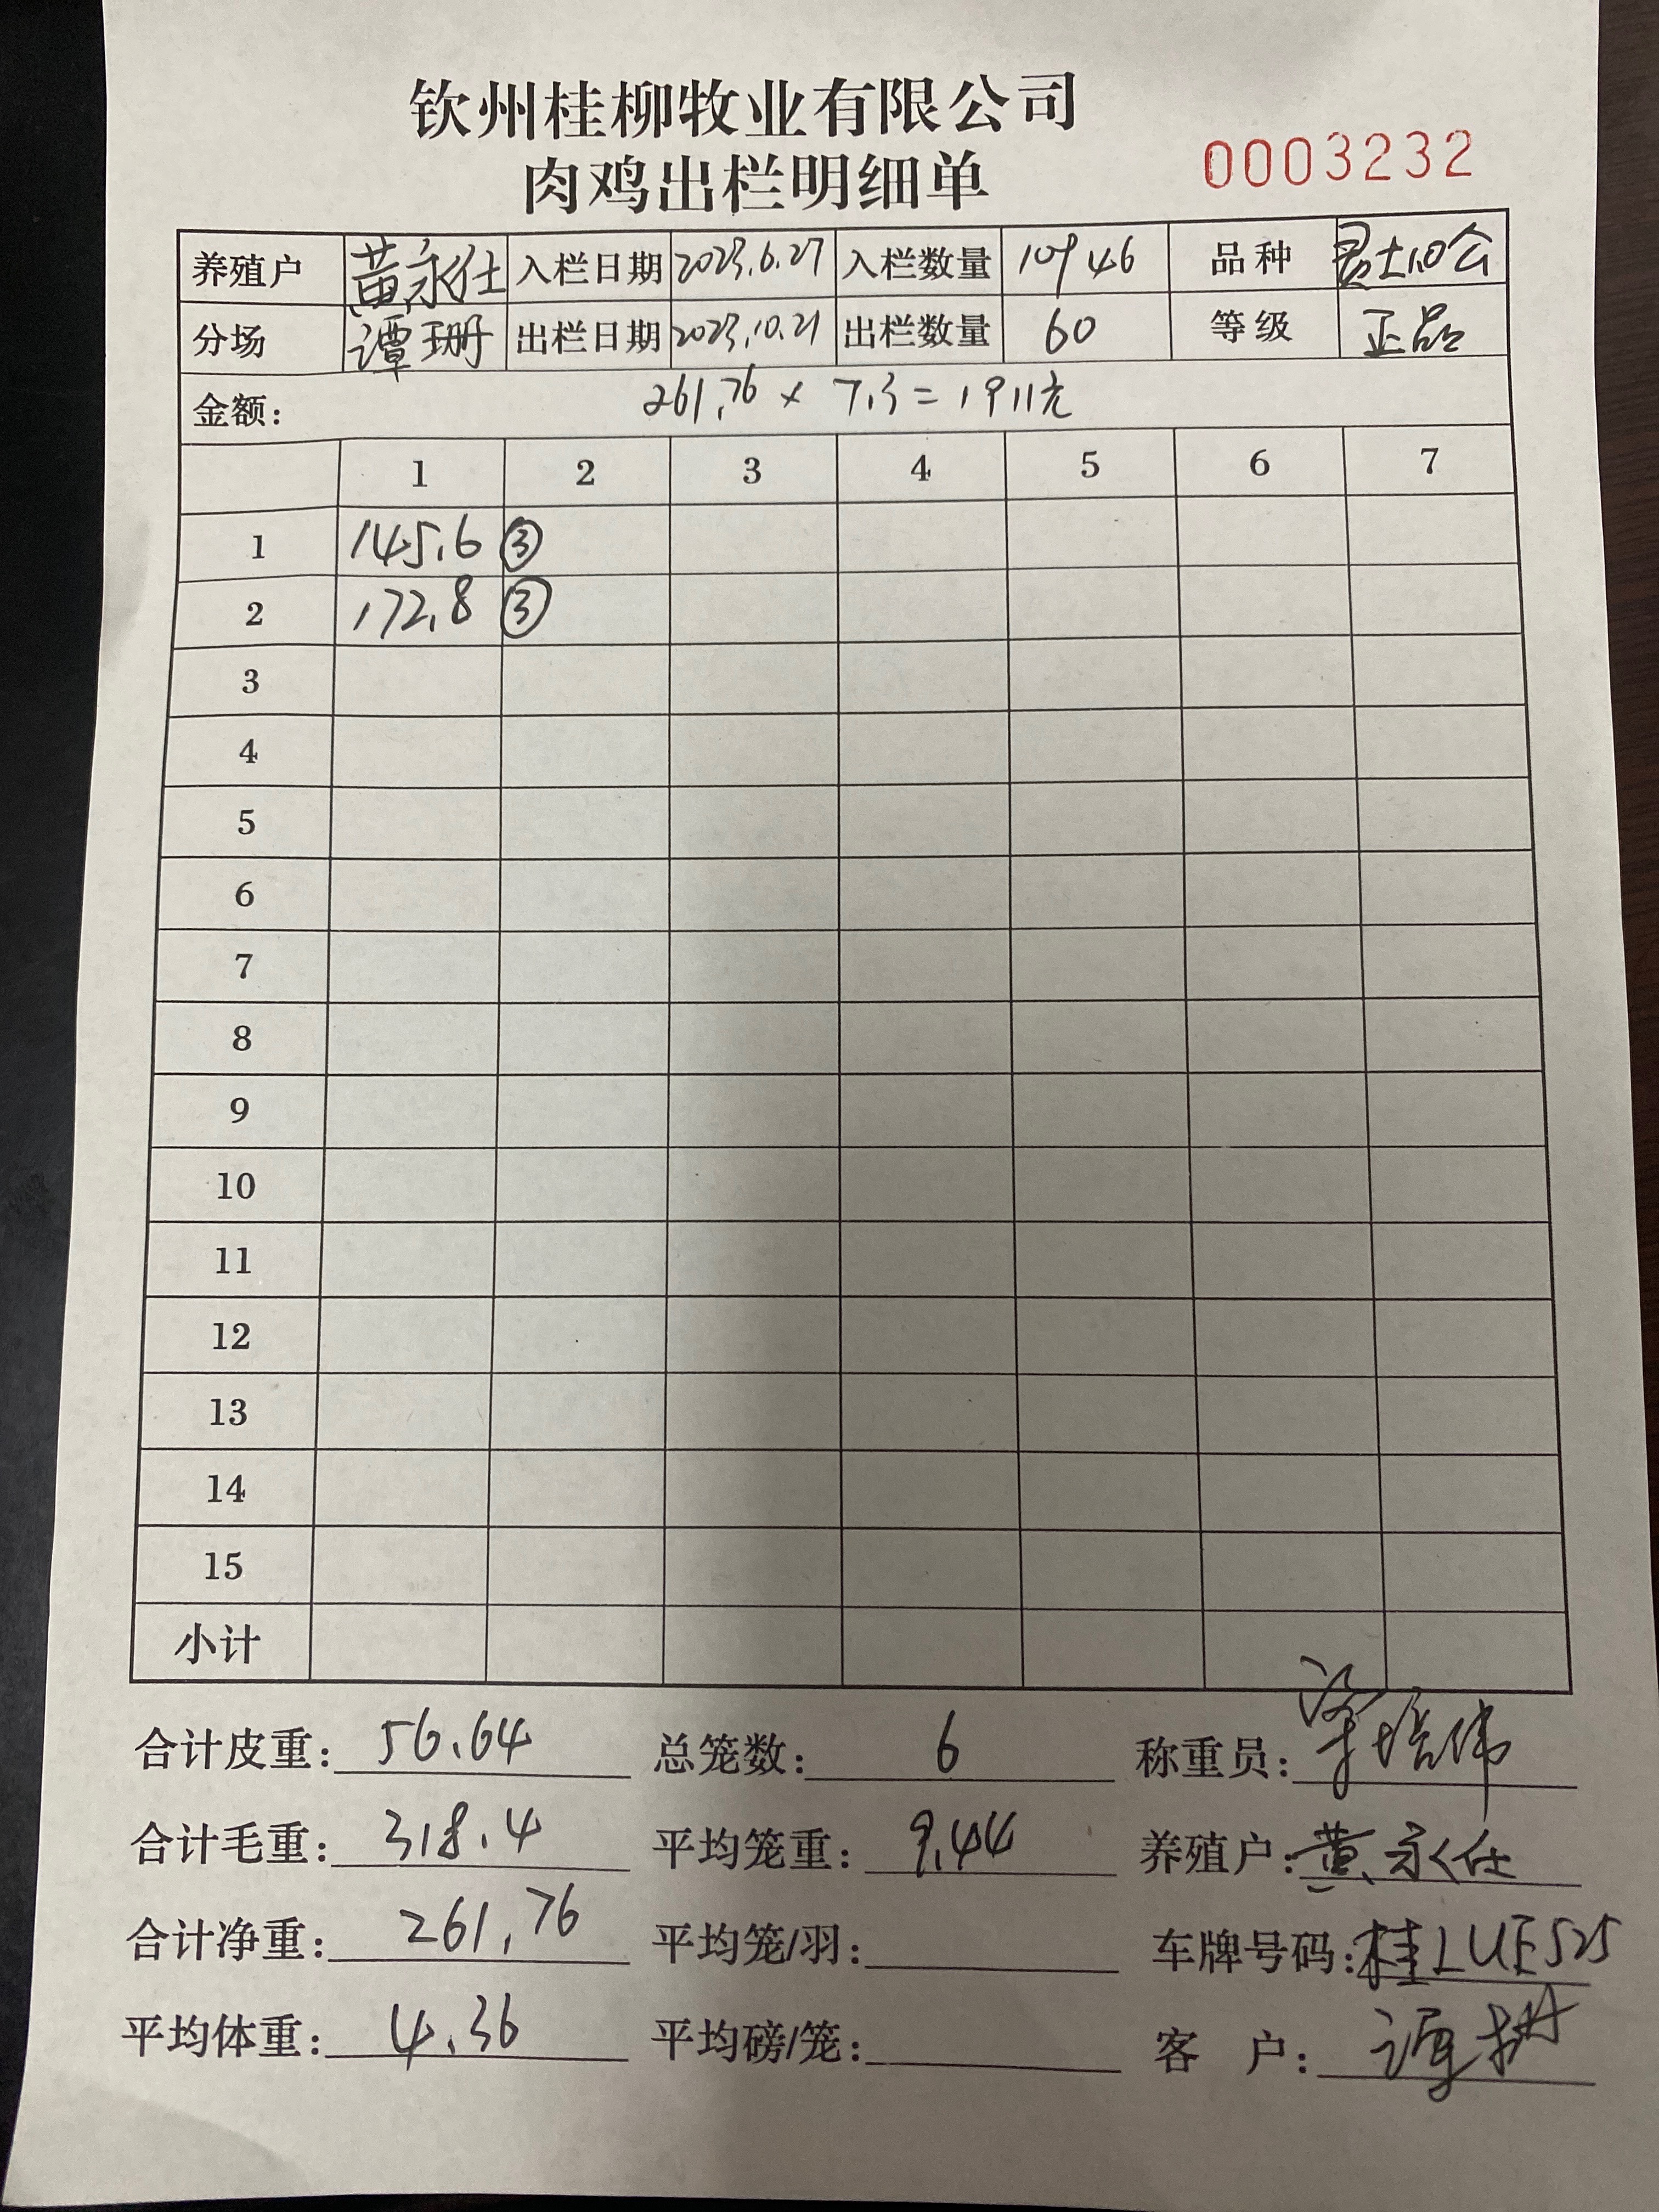 钦州桂柳牧业有限公司
肉鸡出栏明细单
0003232
养殖户 黄永仕 入栏日期 2023.6.27 入栏数量 10946 品种
分场 谭珊 出栏日期 2023.10.21 出栏数量 60 等级 正品
金额: 261.76 × 7.3 = 1911元
1 2 3 4 5 6 7
1 145.6 ③
2 172.8 ③
3
4
5
6
7
8
9
10
11
12
13
14
15
小计
合计皮重: 56.64 总笼数: 6 称重员:
合计毛重: 318.4 平均笼重: 9.44 养殖户: 黄永仕
合计净重: 261.76 平均笼/羽: 车牌号码: 桂LUE525
平均体重: 4.36 平均磅/笼: 客 户: 谭珊